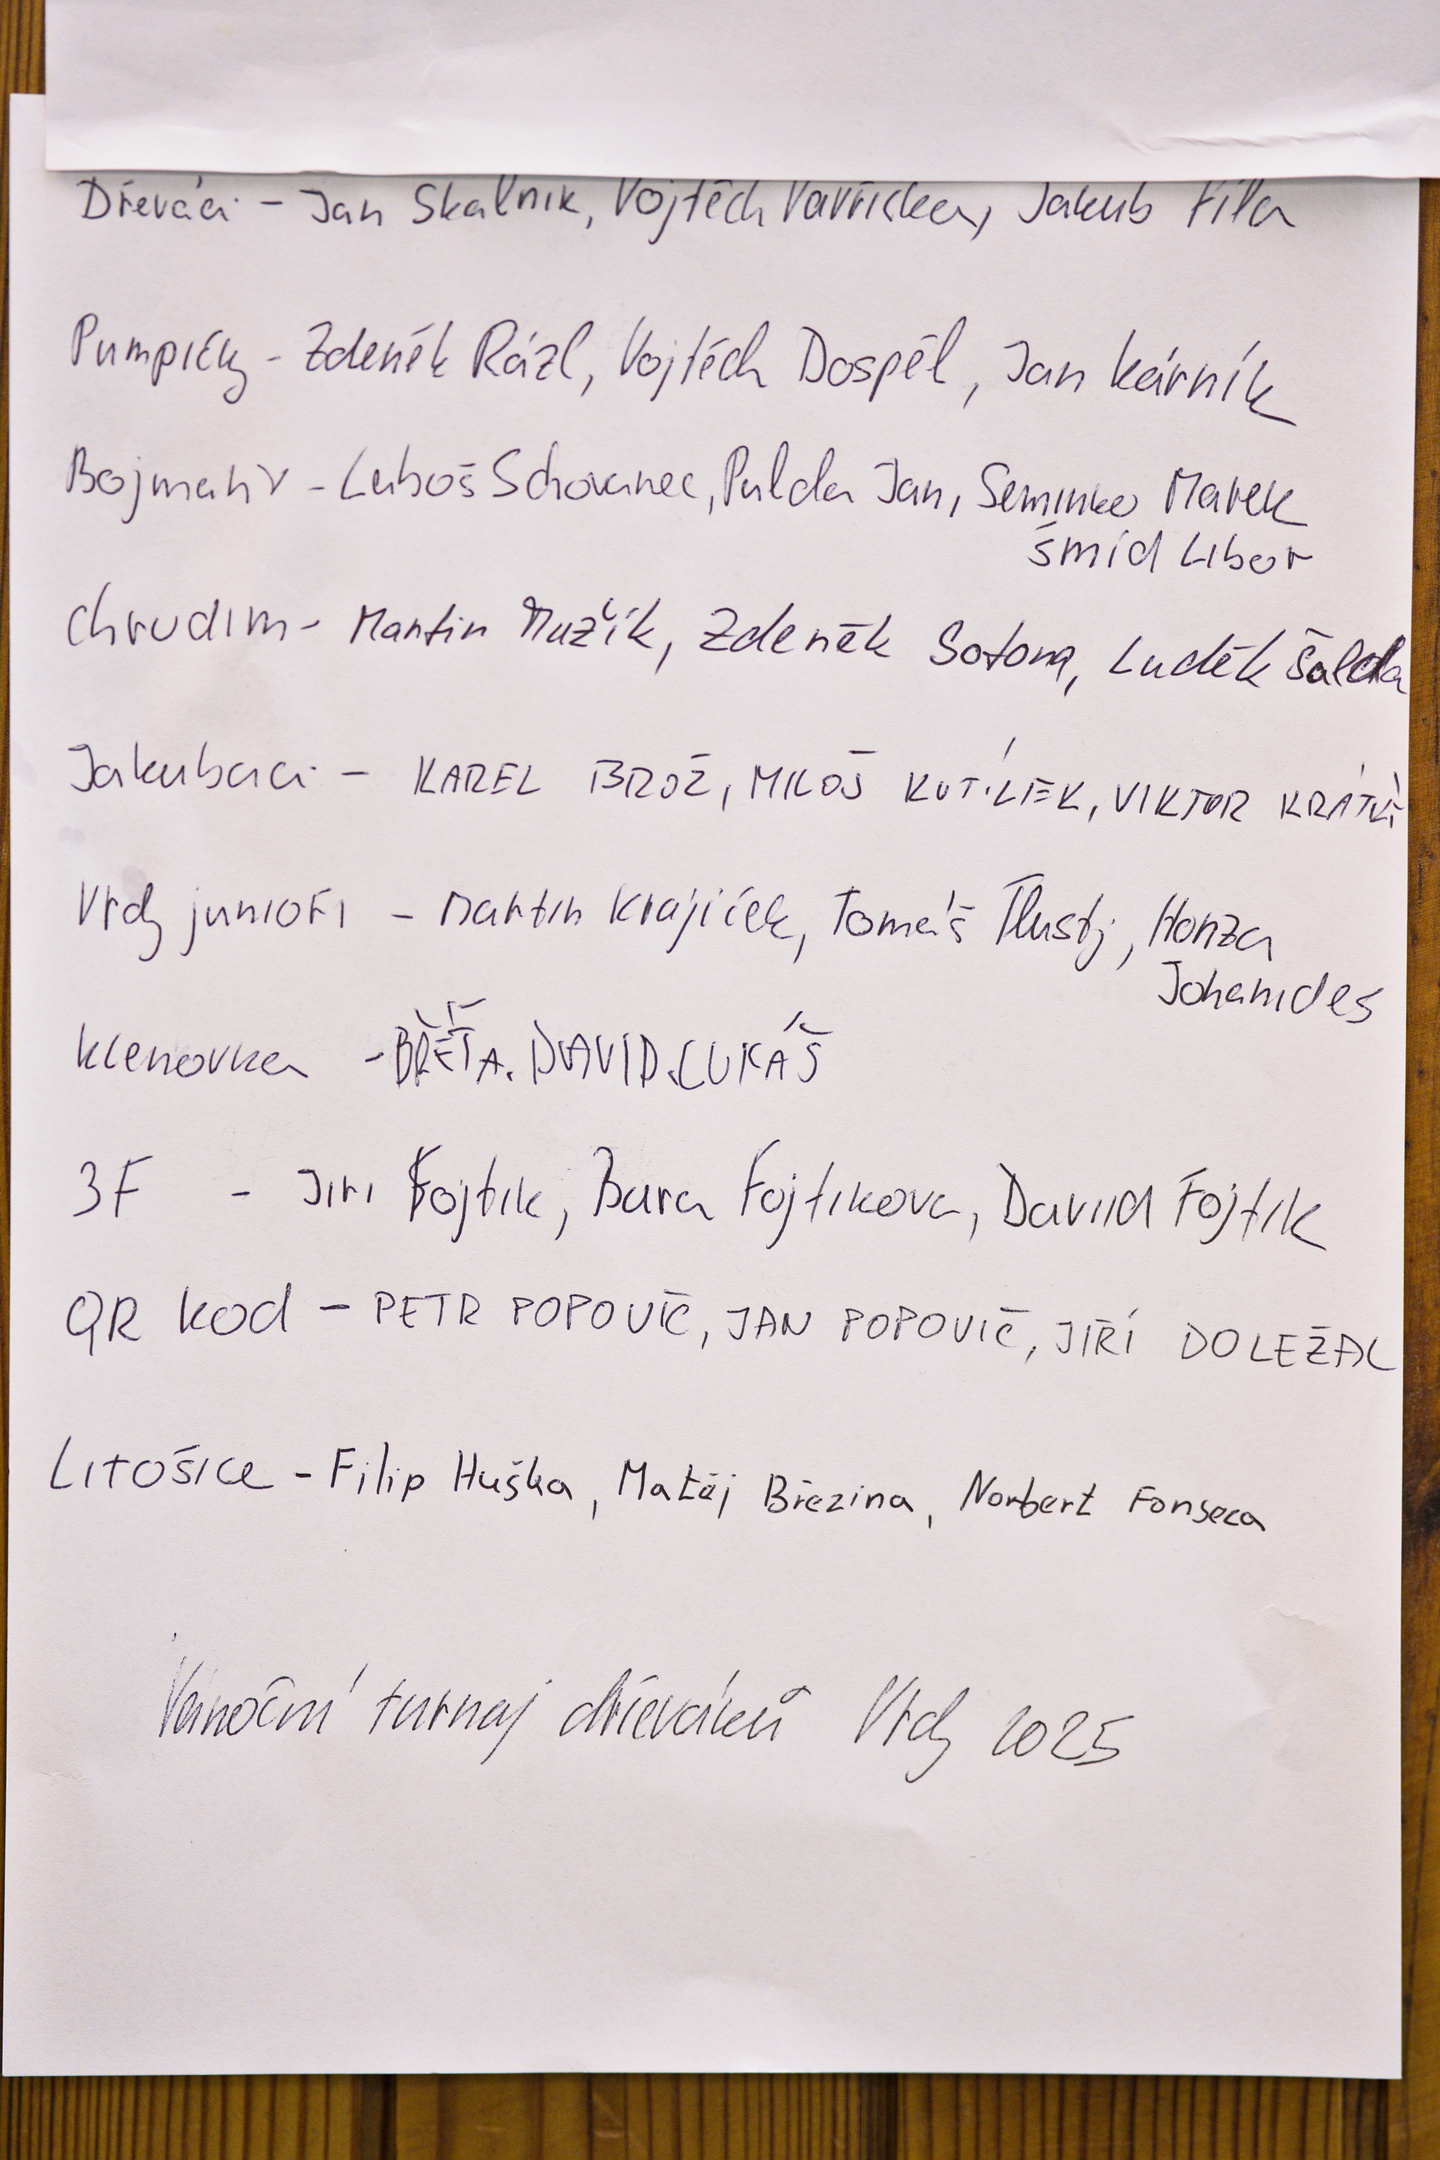 Dřeváci - Jan Skalník, Vojtěch Vavřička, Jakub Fila
Pumpičky - Zdeněk Rázl, Vojtěch Dospěl, Jan Kárník
- Luboš Schovanec, Pulda Jan, Seminko Marek
Šmíd Libor
Chrudim - Martin Mužík, Zdeněk Sotona, Luděk Šalda
Jakubáci - KAREL BROŽ, MILOŠ KUTÍLEK, VIKTOR KRÁTKÝ
Vrdy junioři - Martin Krajíček, Tomáš Tlustý, Honza
Johanides
Klenovka - BŘÉŤA, DAVID, LUKÁŠ
3F - Jiri Fojtik, Bara Fojtikova, David Fojtik
QR kod - PETR POPOVIČ, JAN POPOVIČ, JIŘÍ DOLEŽAL
LITOŠICE - Filip Huška, Matěj Březina, Norbert Fonseca
Vánoční turnaj dřeváků Vrdy 2025